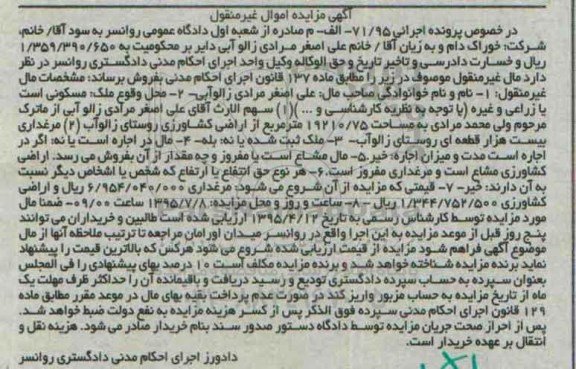 آگهی مزایده اموال غیرمنقول
در خصوص پرونده اجرائی ۷۱/۹۵- الف- م صادره از شعبه اول دادگاه عمومی روانسر به سود آقا/ خانم،
شرکت: خوراک دام و به زیان آقا / خانم علی اصغر مرادی زالو آبی دایر بر محکومیت به ۱/۳۵۹/۳۹۰/۶۵۰
ریال و خسارت دادرسی و تاخیر تاریخ و حق الوکاله وکیل واحد اجرای احکام مدنی دادگستری روانسر در نظر
دارد مال غیرمنقول موصوف در زیر را مطابق ماده ۱۳۷ قانون اجرای احکام مدنی بفروش برساند: مشخصات مال
غیرمنقول: ۱- نام و نام خوادوگی صاحب مال: علی اصغر مرادی زالوآبی- ۲- محل وقوع ملک: مسکونی است
یا زراعی و غیره (با توجه به نظریه کارشناسی و ...) (۱) سهم الارث آقای علی اصغر مرادی زالو آبی از ماترک
مرحوم ولی محمد مرادی به مساحت ۱۹۲۱۰/۷۵ مترمربع از اراضی کشاورزی روستای زالوآب (۲) مرغداری
بیست هزار قطعه ای روستای زالوآب- ۳- ملک ثبت شده یا نه: بله- ۴- مال در اجاره است یا نه: اگر در
اجاره است مدت و میزان اجاره: خیر.۵- مال مشاع است یا مفروز و چه مقدار از آن بفروش می رسد. اراضی
کشاورزی مشاع است و مرغداری مفروز است.۶- هر نوع حق انتفاع یا ارتفاع که شخص یا اشخاص دیگر نسبت
به آن دارند: خیر- ۷- قیمتی که مزایده از آن شروع می شود: مرغداری ۶/۹۵۴/۰۴۰/۰۰۰ ریال و اراضی
کشاورزی ۱/۳۴۴/۷۵۲/۵۰۰ ریال- ۸- ساعت و روز و محل مزایده: ۱۳۹۵/۷/۸ ساعت ۰۹/۰۰- ضمنا مال
مورد مزایده توسط کارشناس رسمی به تاریخ ۱۳۹۵/۴/۱۲ ارزیابی شده است طالبین و خریداران می توانند
پنج روز قبل از موعد مزایده به این اجرا واقع در روانسر میدان اورامان مراجعه تا ترتیب ملاحظه آنها از مال
موضوع آگهی فراهم شود مزایده از قیمت ارزیابی شده شروع می شود هرکس که بالاترین قیمت را پیشنهاد
نماید برنده مزایده شناخته خواهد شد و برنده مزایده مکلف است ۱۰ درصد بهای پیشنهادی را فی المجلس
بعنوان سپرده به حساب سپرده دادگستری تودیع و رسید دریافت و باقیمانده آن را حداکثر ظرف مهلت یک
ماه از تاریخ مزایده به حساب مزبور واریز کند در صورت عدم پرداخت بقیه بهای مال در موعد مقرر مطابق ماده
۱۲۹ قانون اجرای احکام مدنی سپرده فوق الذکر پس از کسر هزینه مزایده به نفع دولت ضبط خواهد شد.
پس از احراز صحت جریان مزایده توسط دادگاه دستور صدور سند بنام خریدار صادر می شود. هزینه نقل و
انتقال بر عهده خریدار است.
دادورز اجرای احکام مدنی دادگستری روانسر